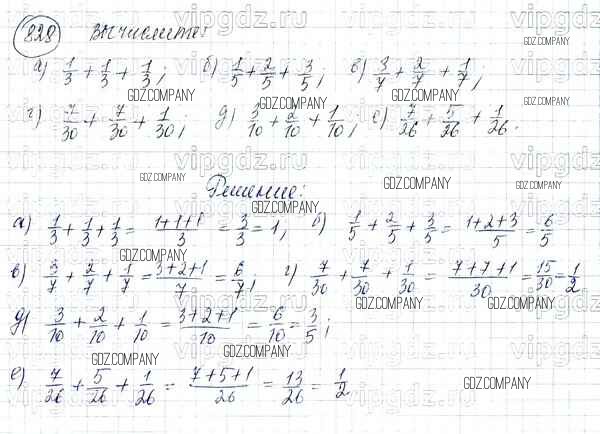 828 Вычислите:
а) 1/3 + 1/3 + 1/3; б) 1/5 + 2/5 + 3/5; в) 3/7 + 2/7 + 1/7;
г) 7/30 + 7/30 + 1/30; д) 3/10 + 2/10 + 1/10; е) 7/26 + 5/26 + 1/26.
Решение:
а) 1/3 + 1/3 + 1/3 = 1+1+1/3 = 3/3 = 1; б) 1/5 + 2/5 + 3/5 = 1+2+3/5 = 6/5
в) 3/7 + 2/7 + 1/7 = 3+2+1/7 = 6/7; г) 7/30 + 7/30 + 1/30 = 7+7+1/30 = 15/30 = 1/2
д) 3/10 + 2/10 + 1/10 = 3+2+1/10 = 6/10 = 3/5;
е) 7/26 + 5/26 + 1/26 = 7+5+1/26 = 13/26 = 1/2
GDZ.COMPANY
vipgdz.ru